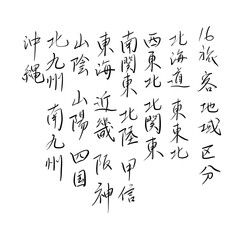 16旅客地域区分
北海道 東東北
西東北 北関東
南関東 北陸 甲信
東海 近畿 阪神
山陰 山陽 四国
北九州 南九州
沖縄